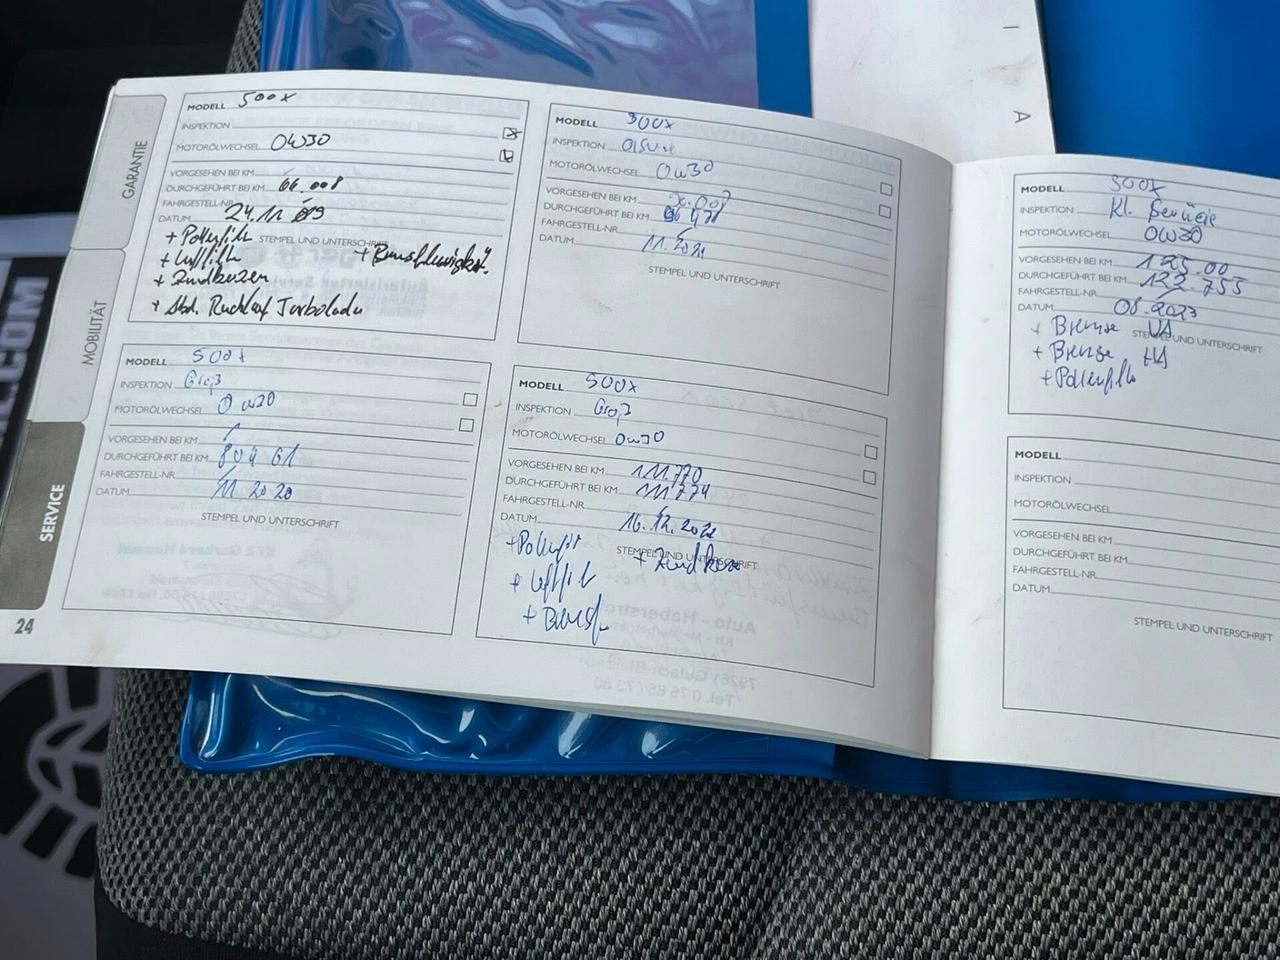 GARANTIE
MOBILITÄT
SERVICE
24
.COM
I
A
MODELL 500x
INSPEKTION
MOTORÖLWECHSEL 0W30
VORGESEHEN BEI KM
DURCHGEFÜHRT BEI KM 66.008
FAHRGESTELL-NR.
DATUM 24.11
STEMPEL UND UNTERSCHRIFT
+ Pollenfilt
+ Luftfilt
+ Zündkerzen
+ Bremsflüssigkeit
Rücklauf Turbolader
MODELL 500x
INSPEKTION Groß
MOTORÖLWECHSEL
VORGESEHEN BEI KM
DURCHGEFÜHRT BEI KM 80461
FAHRGESTELL-NR.
DATUM 11 2020
STEMPEL UND UNTERSCHRIFT
MODELL 500x
INSPEKTION
MOTORÖLWECHSEL 0W30
VORGESEHEN BEI KM
DURCHGEFÜHRT BEI KM
FAHRGESTELL-NR.
DATUM 11.2021
STEMPEL UND UNTERSCHRIFT
MODELL 500x
INSPEKTION Groß
MOTORÖLWECHSEL 0W30
VORGESEHEN BEI KM 111.770
DURCHGEFÜHRT BEI KM 111.774
FAHRGESTELL-NR.
DATUM 16.12.2022
STEMPEL UND UNTERSCHRIFT
+ Pollenfilt
+ Zündkerze
+ Luftfilt
+ Bremsfl.
MODELL 500x
INSPEKTION Kl.
MOTORÖLWECHSEL 0W30
VORGESEHEN BEI KM
DURCHGEFÜHRT BEI KM 122.755
FAHRGESTELL-NR.
DATUM 08.2023
STEMPEL UND UNTERSCHRIFT
+ Bremse VA
+ Bremse HA
+ Pollenfilt
MODELL
INSPEKTION
MOTORÖLWECHSEL
VORGESEHEN BEI KM
DURCHGEFÜHRT BEI KM
FAHRGESTELL-NR.
DATUM
STEMPEL UND UNTERSCHRIFT